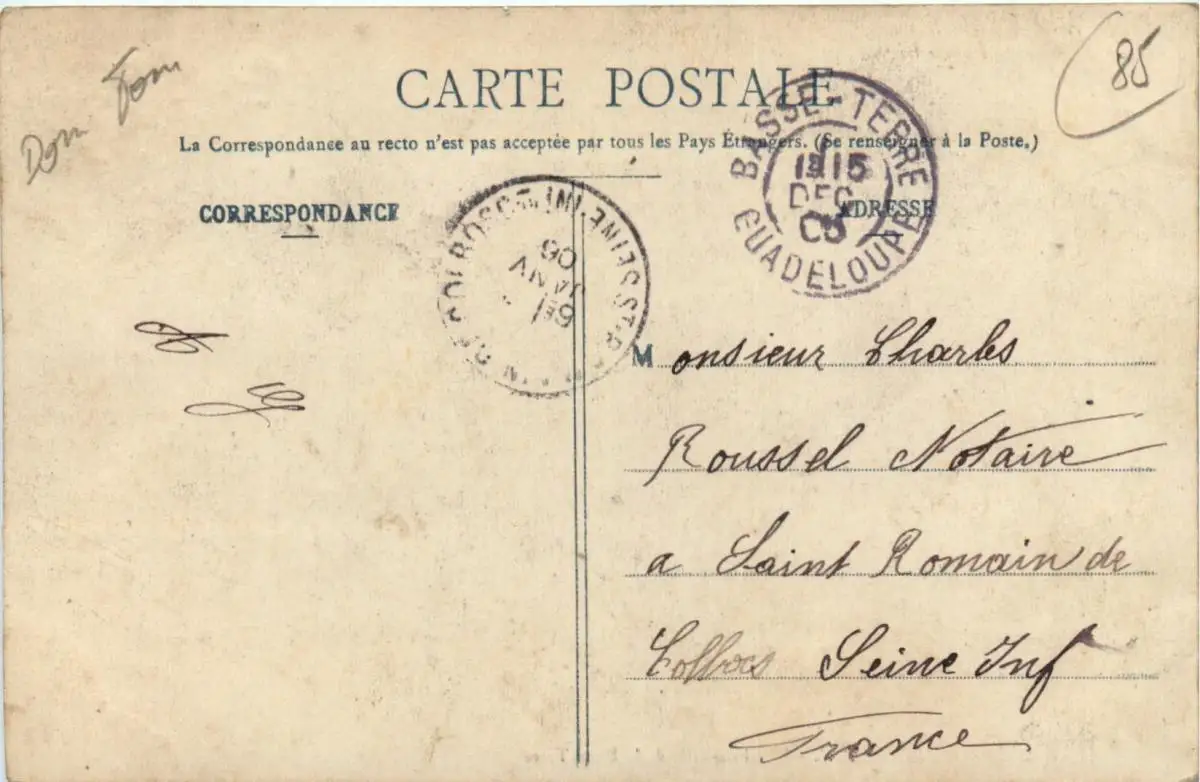 Dom Tom
85
CARTE POSTALE
La Correspondance au recto n'est pas acceptée par tous les Pays Étrangers. (Se renseigner à la Poste.)
CORRESPONDANCE
ADRESSE
BASSE-TERRE
15
DEC
05
GUADELOUPE
SEINE INF
JANV
06
Monsieur Charles
Roussel Notaire
a Saint Romain de
Colbocs Seine Inf
France